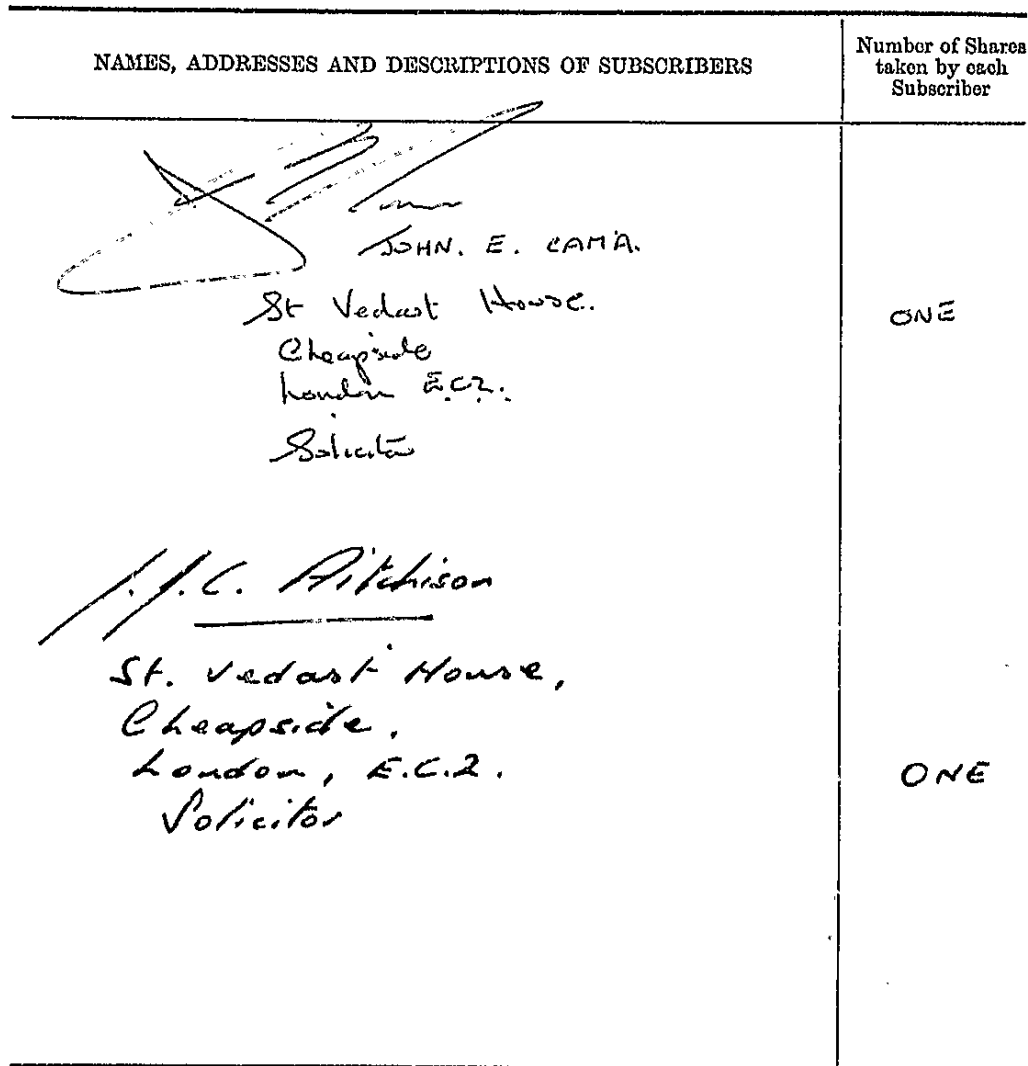 NAMES, ADDRESSES AND DESCRIPTIONS OF SUBSCRIBERS
Number of Shares
taken by each
Subscriber
JOHN. E. CAMA.
St Vedast House.
Cheapside
London E.C.2.
Solicitor
ONE
J.J.C. Aitchison
St. Vedast House,
Cheapside,
London, E.C.2.
Solicitor
ONE